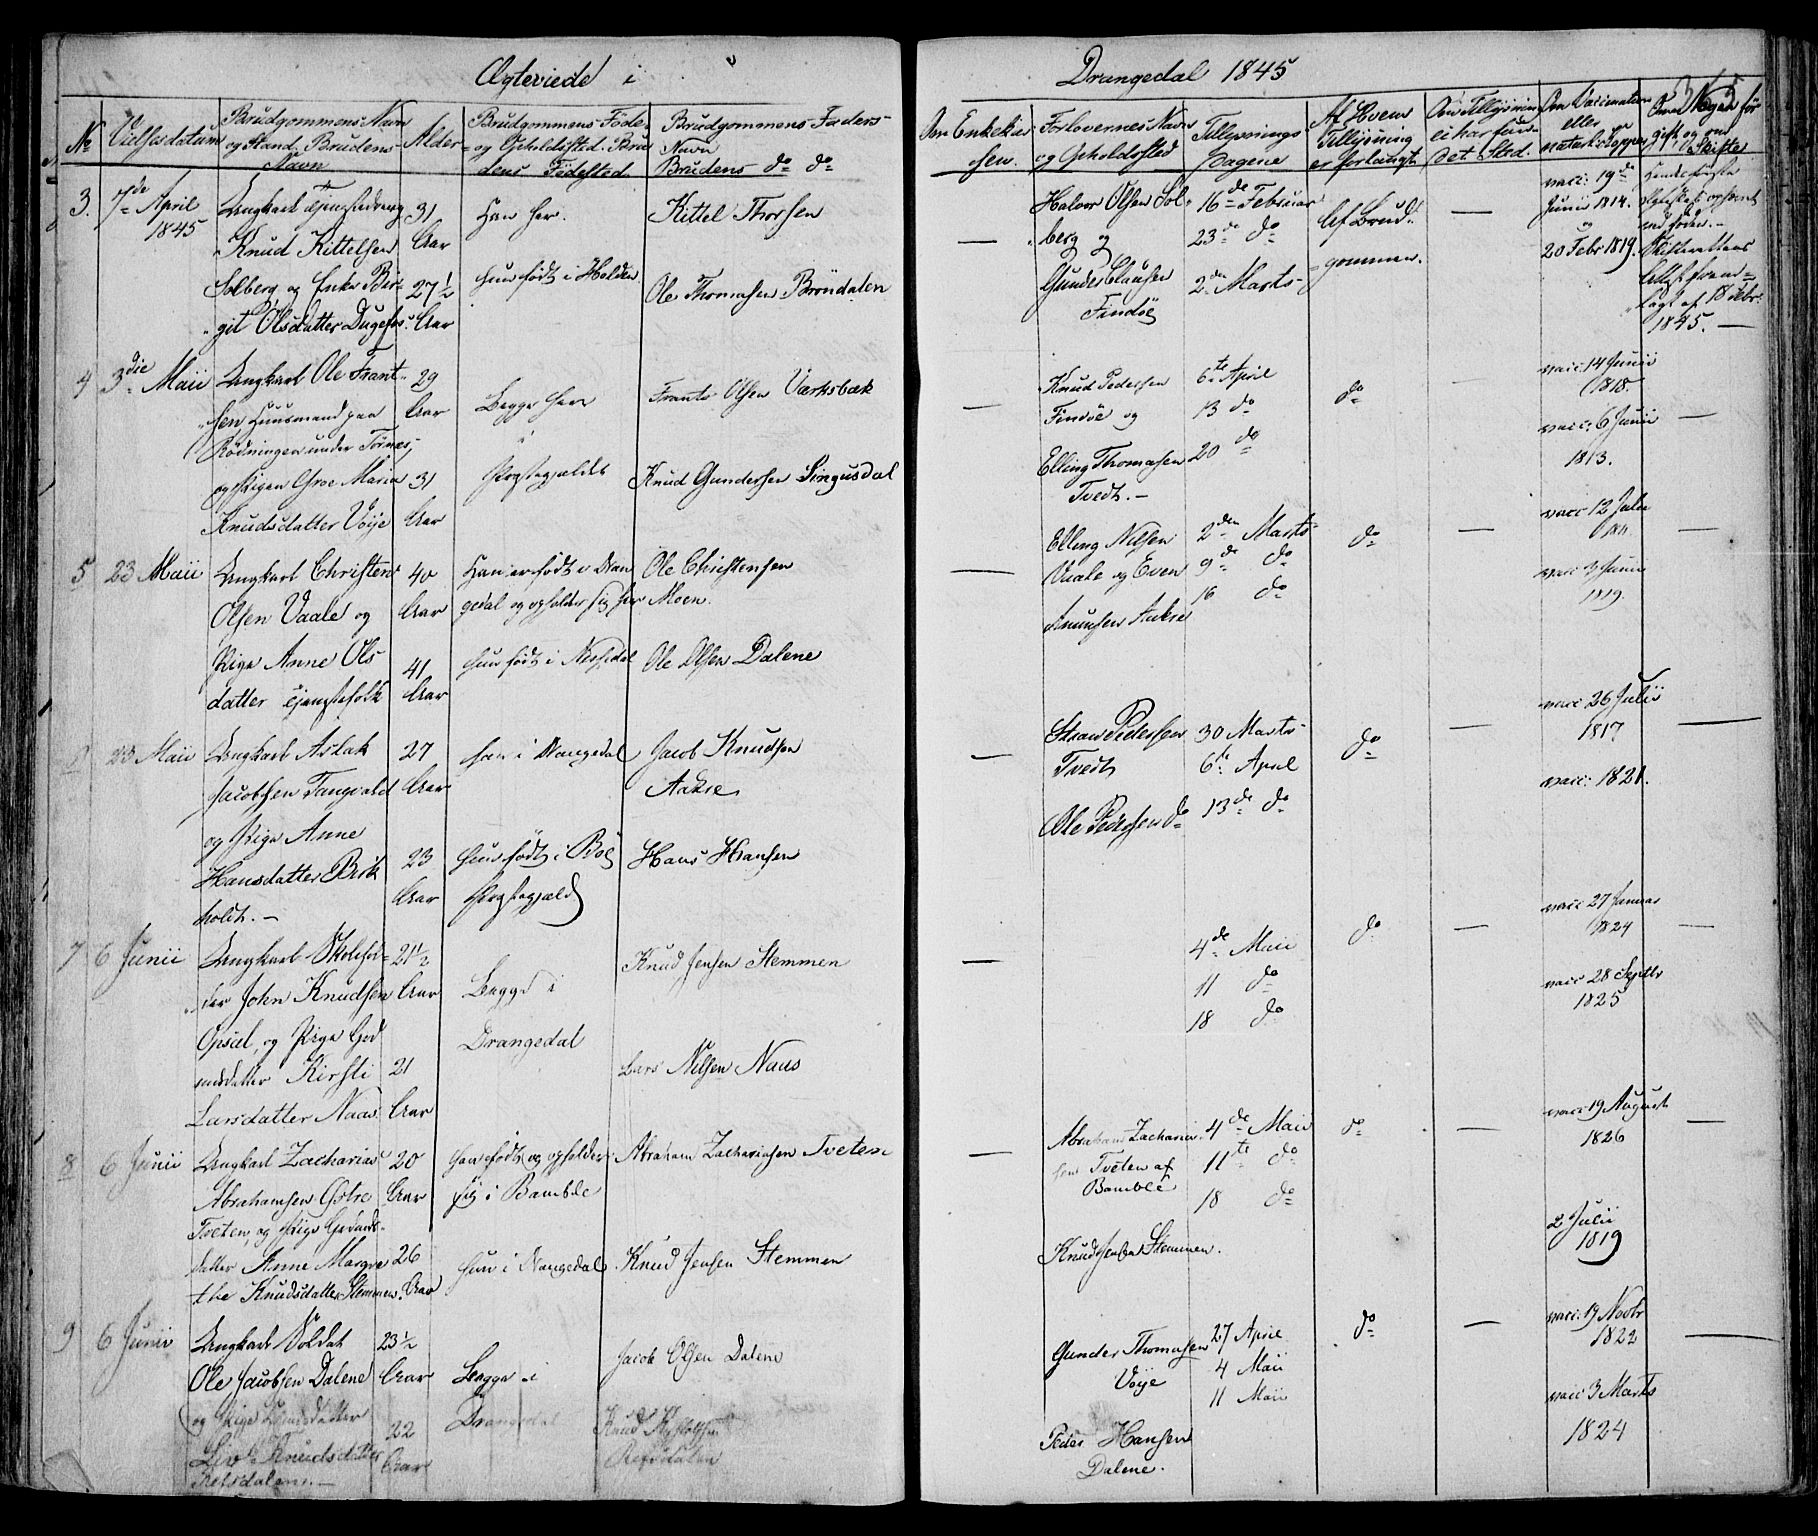 Ægteviede i Drangedal 1845
№ Vielsesdatum Brudgommens Navn og Stand, Brudens Navn Alder Brudgommens Føde- og Opholdssted. Brudens Fødested Brudgommens Faders Navn Brudens do do
Forlovernes Navn og Opholdssted Tillysnings Dagene Af Hvem Tillysning er forlangt Om Tillysning ei har funden Sted. Om Vaccination eller naturl: Kopper
3. 7de April 1845
Ungkarl Tjenestedreng
Knud Kittelsen
Solberg og Enke Bir-
git Olsdatter Dugefos:
31 Aar
27½ Aar
Han her.
Hun født i Holden
Kittel Thorsen
Ole Thomasen Brøndalen
Halvor Olsen Sol-
berg og
Gunder Clausen
Findøe
16de Februar
23de do
2den Marts
Af Brud-
gommen.
vacc: 19de
Junii 1814.
og
20 Febr: 1819.
lagt af 18 Febr:
1845. —
4 3die Maii
Ungkarl Ole Frant-
sen Huusmand paa
Rødningen under Tørnes,
og Pigen Groe Maria
Knudsdatter Voje
29 Aar
31 Aar
Begge her
i
Præstegjældet
Frants Olsen Værksbæk
Knud Gundersen Singusdal
Knud Pedersen
Findøe og
Elling Thomasen
Tvedt. —
6te April
13 do
20 do
do
vacc: 14 Junii
1818.
vacc: 6 Junii
1813.
5 23 Maii
Ungkarl Christen
Olsen Vaale og
Pige Anne Ols
datter Tjenestefolk
40 Aar
41 Aar
Han er født i Dran
gedal og opholder sig her
Hun født i Nissedal
Ole Christensen
Moen.
Ole Olsen Dalene
Elling Nilsen
Vaale og Even
Knudsen Aakre
2den Marts
9de do
16 do
do
vacc 12 Julii
vacc 3 Junii
1819.
23 Maii
Ungkarl Aslak
Jacobsen Tangvald
og Pige Anne
Hansdatter Birk
holdt. —
27 Aar
23 Aar
Han i Drangedal
Hun født i Bøe
Præstegjæld
Jacob Knudsen
Aakre
Hans Hansen
Pedersen
Tvedt
Ole Pedersen do
30 Marts
6te April
13de do
do
vacc 26 Julii
1817
vacc: 1821.
7 6 Junii
Ungkarl Skolehol-
der John Knudsen
Opsal, og Pige Gaard
mdsdatter Kirsti
Larsdatter Naas
21½ Aar
21 Aar
Begge i
Drangedal
Knud Jensen Stemmen
Lars Nilsen Naas
4de Maii
11 do
18 do
do
vacc 27 Januar
1824
vacc 28 Septbr
1825
8 6 Junii
Ungkarl Zacharias
Abrahamsen Østre
Tveten, og Pige Gaardmds-
datter Anne Margre
the Knudsdatter Stemmen.
20 Aar
26 Aar
Han født og opholder
sig i Bamble
Hun i Drangedal
Abraham Zachariasen Tveten
Knud Jensen Stemmen
Abraham Zacharia-
sen Tveten af
Bamble
Knud Jensen Stemmen.
4de Maii
11te do
18 do
do
vacc 19 August
1826
2 Julii
1819
9 6 Junii
Ungkarl Soldat
Ole Jacobsen Dalene
og Pige
Liv Knudsdatter
Refsdalen. —
23½ Aar
22 Aar
Begge i
Drangedal
Jacob Olsen Dalene
Knud
Refsdalen
Gunder Thomasen
Voje
Peder Hansen
Dalene.
27 April
4 Maii
11 Maii
do
vacc: 19 Novbr
1822
vacc 3 Marts
1824